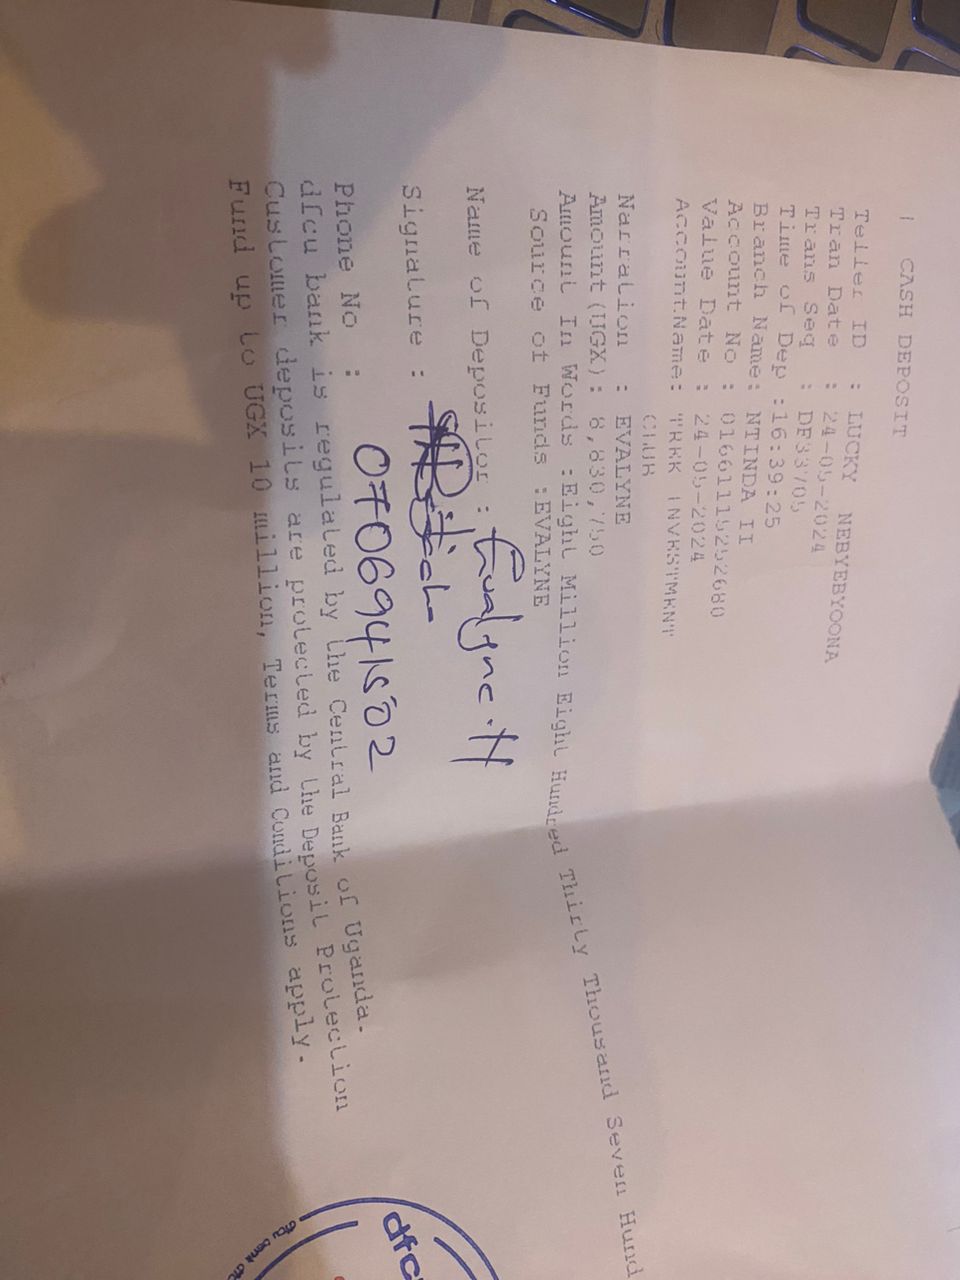 CASH DEPOSIT
Teller ID : LUCKY NEBYEBYOONA
Tran Date : 24-05-2024
Trans Seq : DF33705
Time of Dep :16:39:25
Branch Name: NTINDA II
Account No : 01661115252680
Value Date : 24-05-2024
AccountName: INVESTMENT
CLUB
Narration : EVALYNE
Amount (UGX): 8,830,750
Amount In Words :Eight Million Eight Hundred Thirty Thousand Seven Hund
Source of Funds :EVALYNE
Name of Depositor : Evalyne.H
Signature :
Phone No : 0706941502
dfcu bank is regulated by the Central Bank of Uganda.
Customer deposits are protected by the Deposit Protection
Fund up to UGX 10 million, Terms and Conditions apply.
dfc
dfcu bank dfc